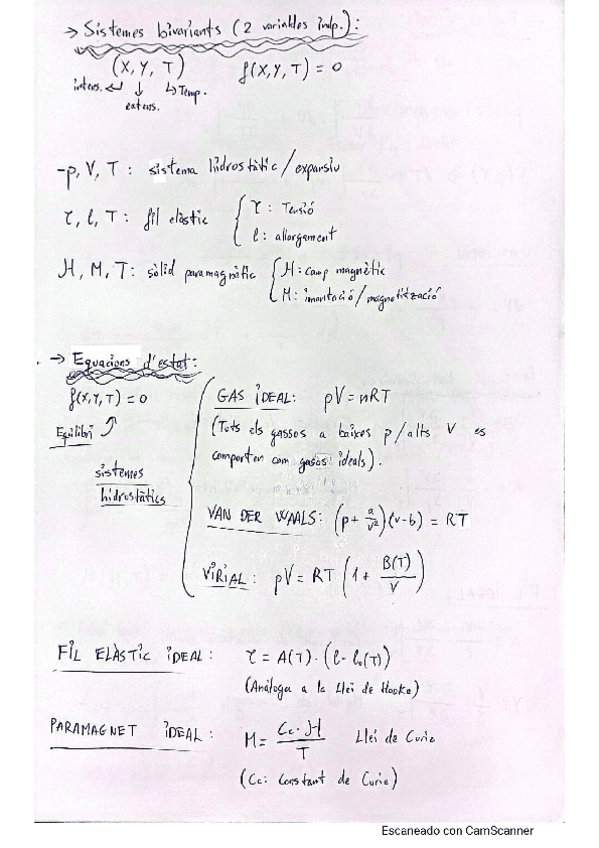 → Sistemes bivariants (2 variables indp.):
(X, Y, T) f(X,Y,T) = 0
intens. ↵ ↓ ↳ Temp.
extens.
-p, V, T : sistema hidrostàtic/expansiu
τ, l, T : fil elàstic { τ : Tensió
l : allargament
H, M, T : sòlid paramagnètic { H : camp magnètic
M : imantació/magnetització
→ Equacions d'estat:
f(X,Y,T) = 0
Equilibri
sistemes
hidrostàtics
GAS IDEAL: pV = nRT
(Tots els gassos a baixes p/alts V es
comporten com gasos ideals).
VAN DER WAALS: (p + a/v²)(v-b) = RT
VIRIAL: pV = RT (1 + B(T)/V)
FIL ELÀSTIC IDEAL: τ = A(T) · (l - l₀(T))
(Anàloga a la Llei de Hooke)
PARAMAGNET IDEAL: M = Cc · H / T Llei de Curie
(Cc: Constant de Curie)
Escaneado con CamScanner